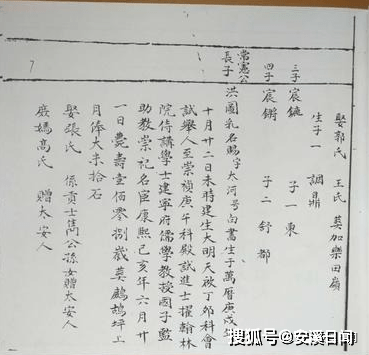 娶郭氏 王氏 葬加樂田嶺
生子一 調鼎
三子 宸鏕 子一 東
四子 宸鏘 子二 舒 都
常憲公
長子 洪圖乳名賜字太河号向書生于萬曆庚戌年
十月廿二日未時建生大明天啟丁卯科會
試舉人至崇禎庚午科殿試進士擢翰林
院侍講學士建寧府儒學教授國子監
助教崇祀名宦康熙己亥年六月廿
一日棄壽壹佰零捌歲葬鷓鴣坪上
月俸大米拾石
娶張氏 係貢士雋公孫女贈太安人
庶媽高氏 贈太安人
7
搜狐号@安溪日闻